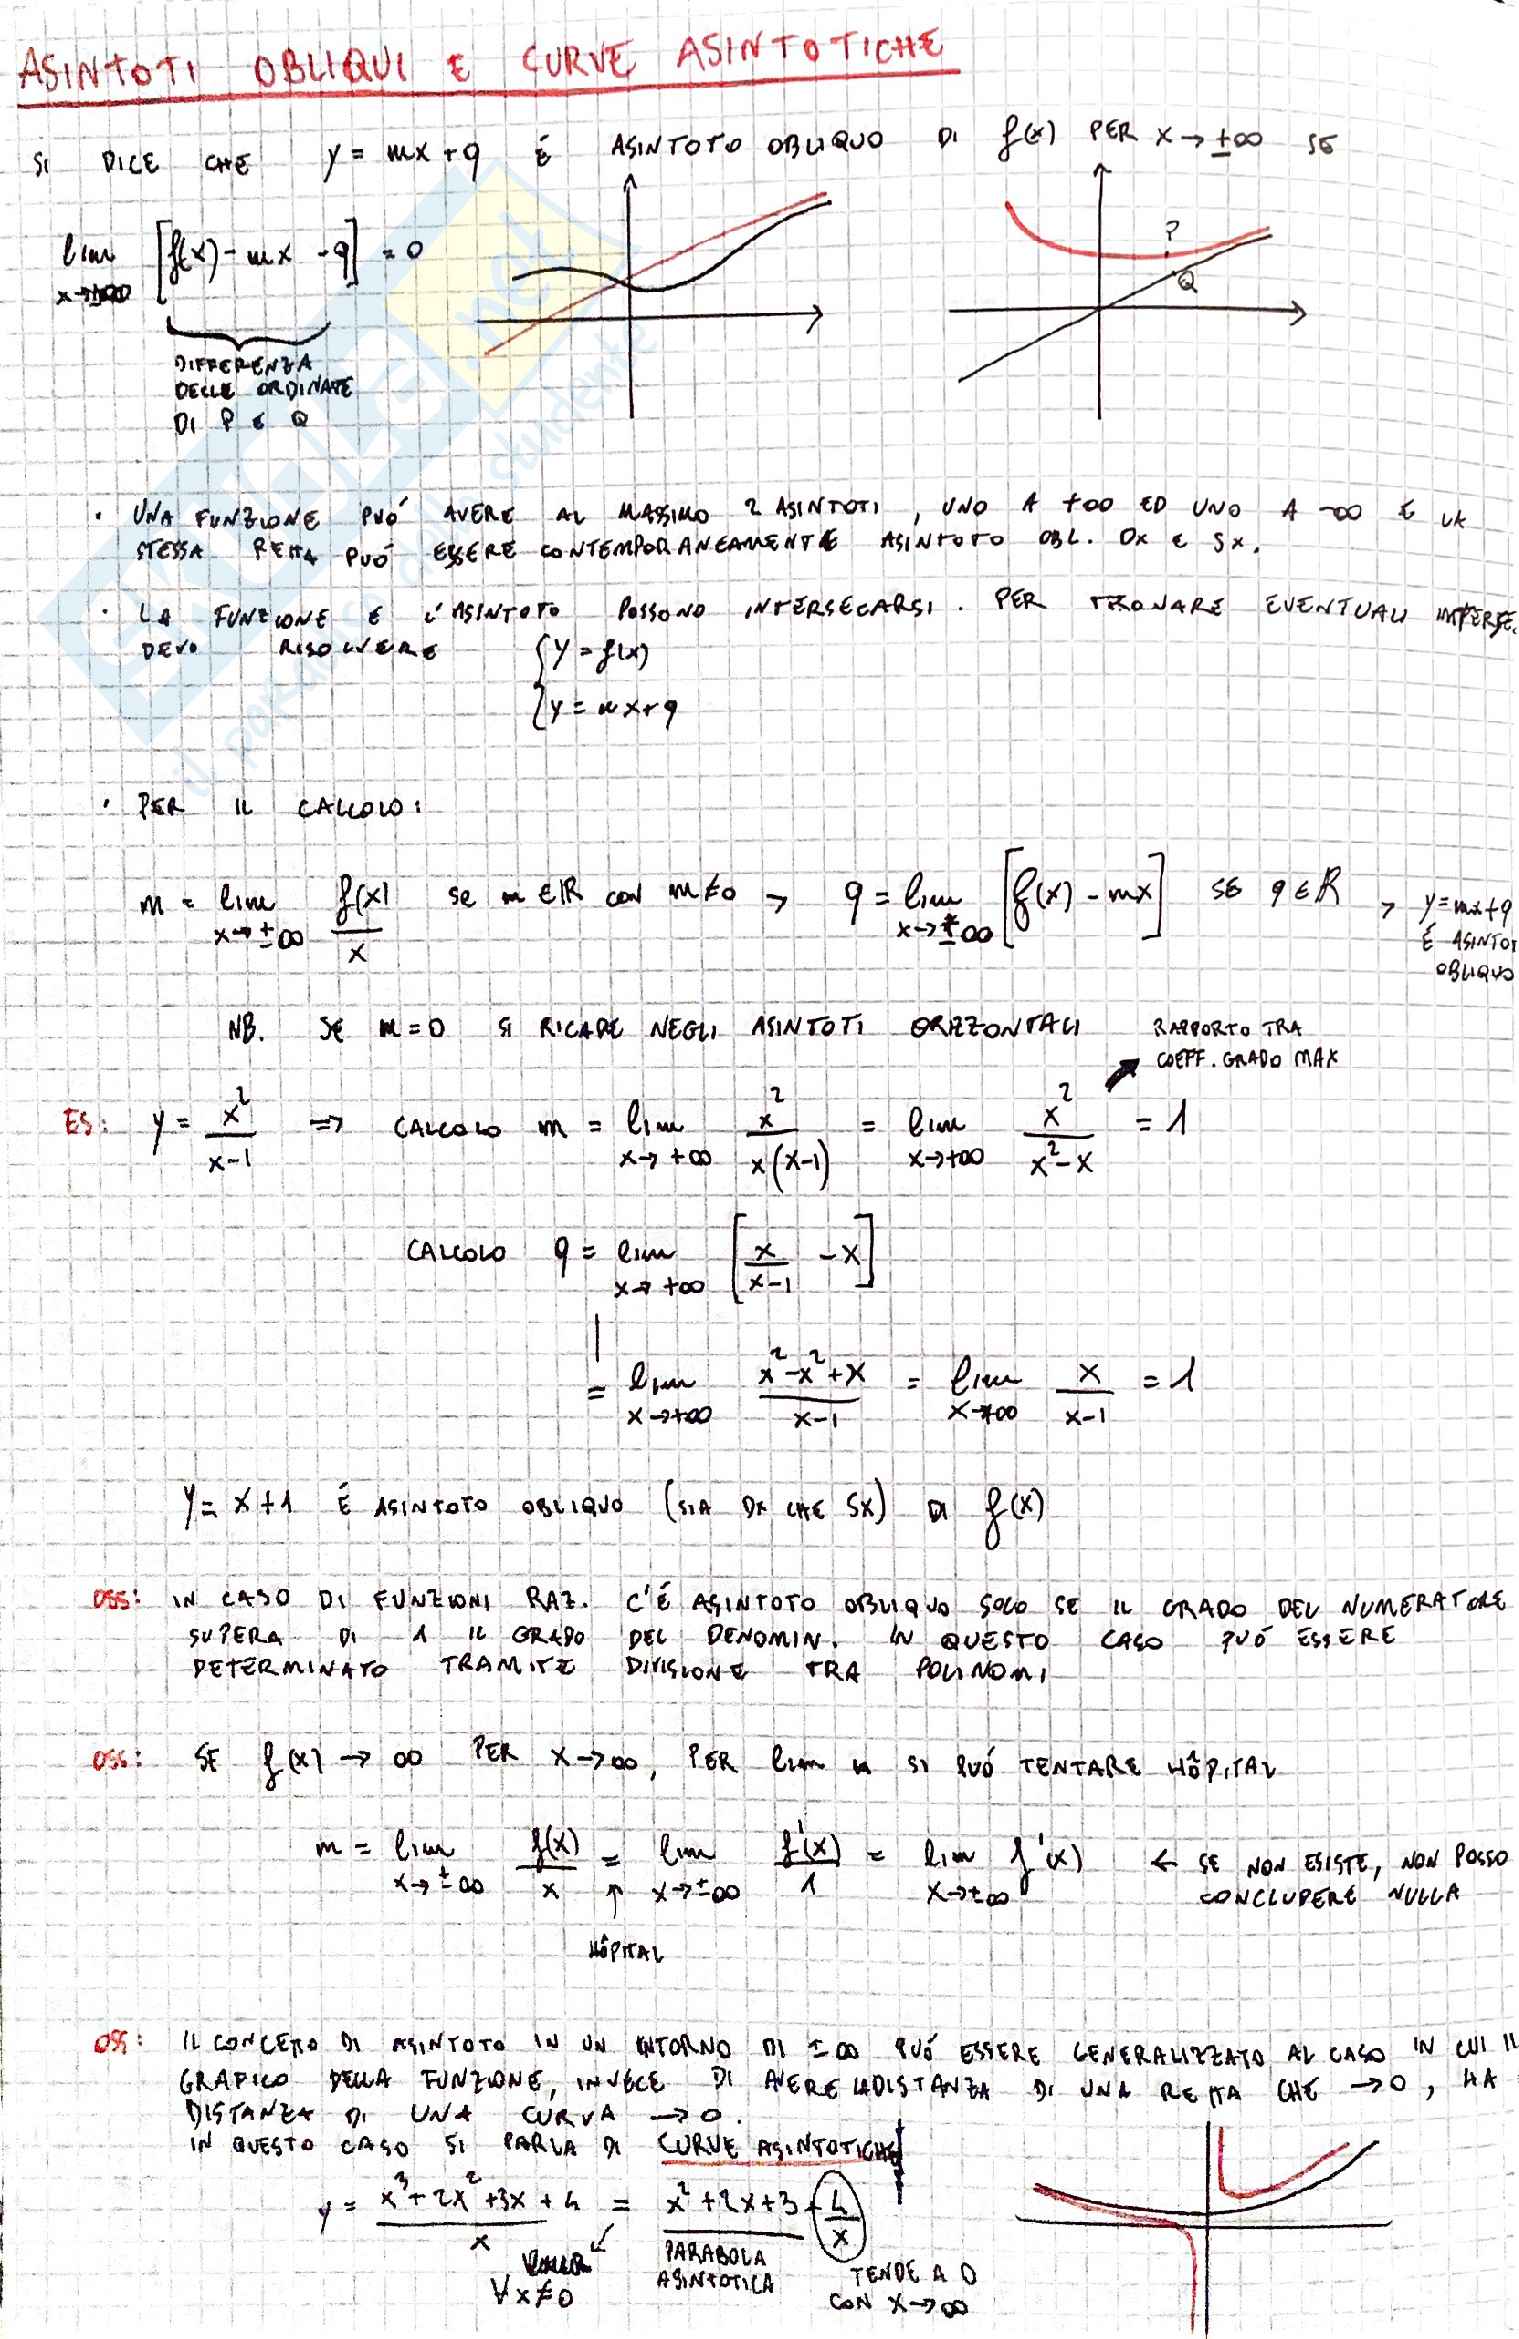 ASINTOTI OBLIQUI E CURVE ASINTOTICHE
SI DICE CHE y = mx + q É ASINTOTO OBLIQUO DI f(x) PER x → ±∞ SE
lim x→±∞ [f(x) - mx - q] = 0
P
Q
DIFFERENZA
DELLE ORDINATE
DI P E Q
· UNA FUNZIONE PUÓ AVERE AL MASSIMO 2 ASINTOTI, UNO A +∞ ED UNO A -∞ E LA
STESSA RETTA PUÓ ESSERE CONTEMPORANEAMENTE ASINTOTO OBL. DX E SX.
· LA FUNZIONE E L'ASINTOTO POSSONO INTERSECARSI. PER TROVARE EVENTUALI INTERSE.
DEVO RISOLVERE { y = f(x)
{ y = mx + q
· PER IL CALCOLO:
m = lim x→±∞ f(x)/x se m ∈ ℝ con m ≠ 0 → q = lim x→±∞ [f(x) - mx] SE q ∈ ℝ → y = mx + q
É ASINTOT
OBLIQUO
NB. SE m = 0 SI RICADE NEGLI ASINTOTI ORIZZONTALI
RAPPORTO TRA
COEFF. GRADO MAX
ES: y = x²/(x-1) ⇒ CALCOLO m = lim x→+∞ x²/(x(x-1)) = lim x→+∞ x²/(x²-x) = 1
CALCOLO q = lim x→+∞ [x/(x-1) - x]
= lim x→+∞ (x²-x²+x)/(x-1) = lim x→+∞ x/(x-1) = 1
y = x + 1 É ASINTOTO OBLIQUO (SIA DX CHE SX) DI f(x)
OSS: IN CASO DI FUNZIONI RAZ. C'É ASINTOTO OBLIQUO SOLO SE IL GRADO DEL NUMERATORE
SUPERA DI 1 IL GRADO DEL DENOMIN. IN QUESTO CASO PUÓ ESSERE
DETERMINATO TRAMITE DIVISIONE TRA POLINOMI
OSS: SE f(x) → ∞ PER x → ∞, PER lim SI PUÓ TENTARE HÔPITAL
m = lim x→±∞ f(x)/x = lim x→±∞ f'(x)/1 = lim x→±∞ f'(x) ← SE NON ESISTE, NON POSSO
CONCLUDERE NULLA
↑
HÔPITAL
OSS: IL CONCETTO DI ASINTOTO IN UN INTORNO DI ±∞ PUÓ ESSERE GENERALIZZATO AL CASO IN CUI IL
GRAFICO DELLA FUNZIONE, INVECE DI AVERE LA DISTANZA DI UNA RETTA CHE → 0, HA
DISTANZA DI UNA CURVA → 0.
IN QUESTO CASO SI PARLA DI CURVE ASINTOTICHE
y = (x³ + 2x² + 3x + 4)/x = x² + 2x + 3 + 4/x
∀x ≠ 0
PARABOLA
ASINTOTICA
TENDE A 0
CON x → ∞